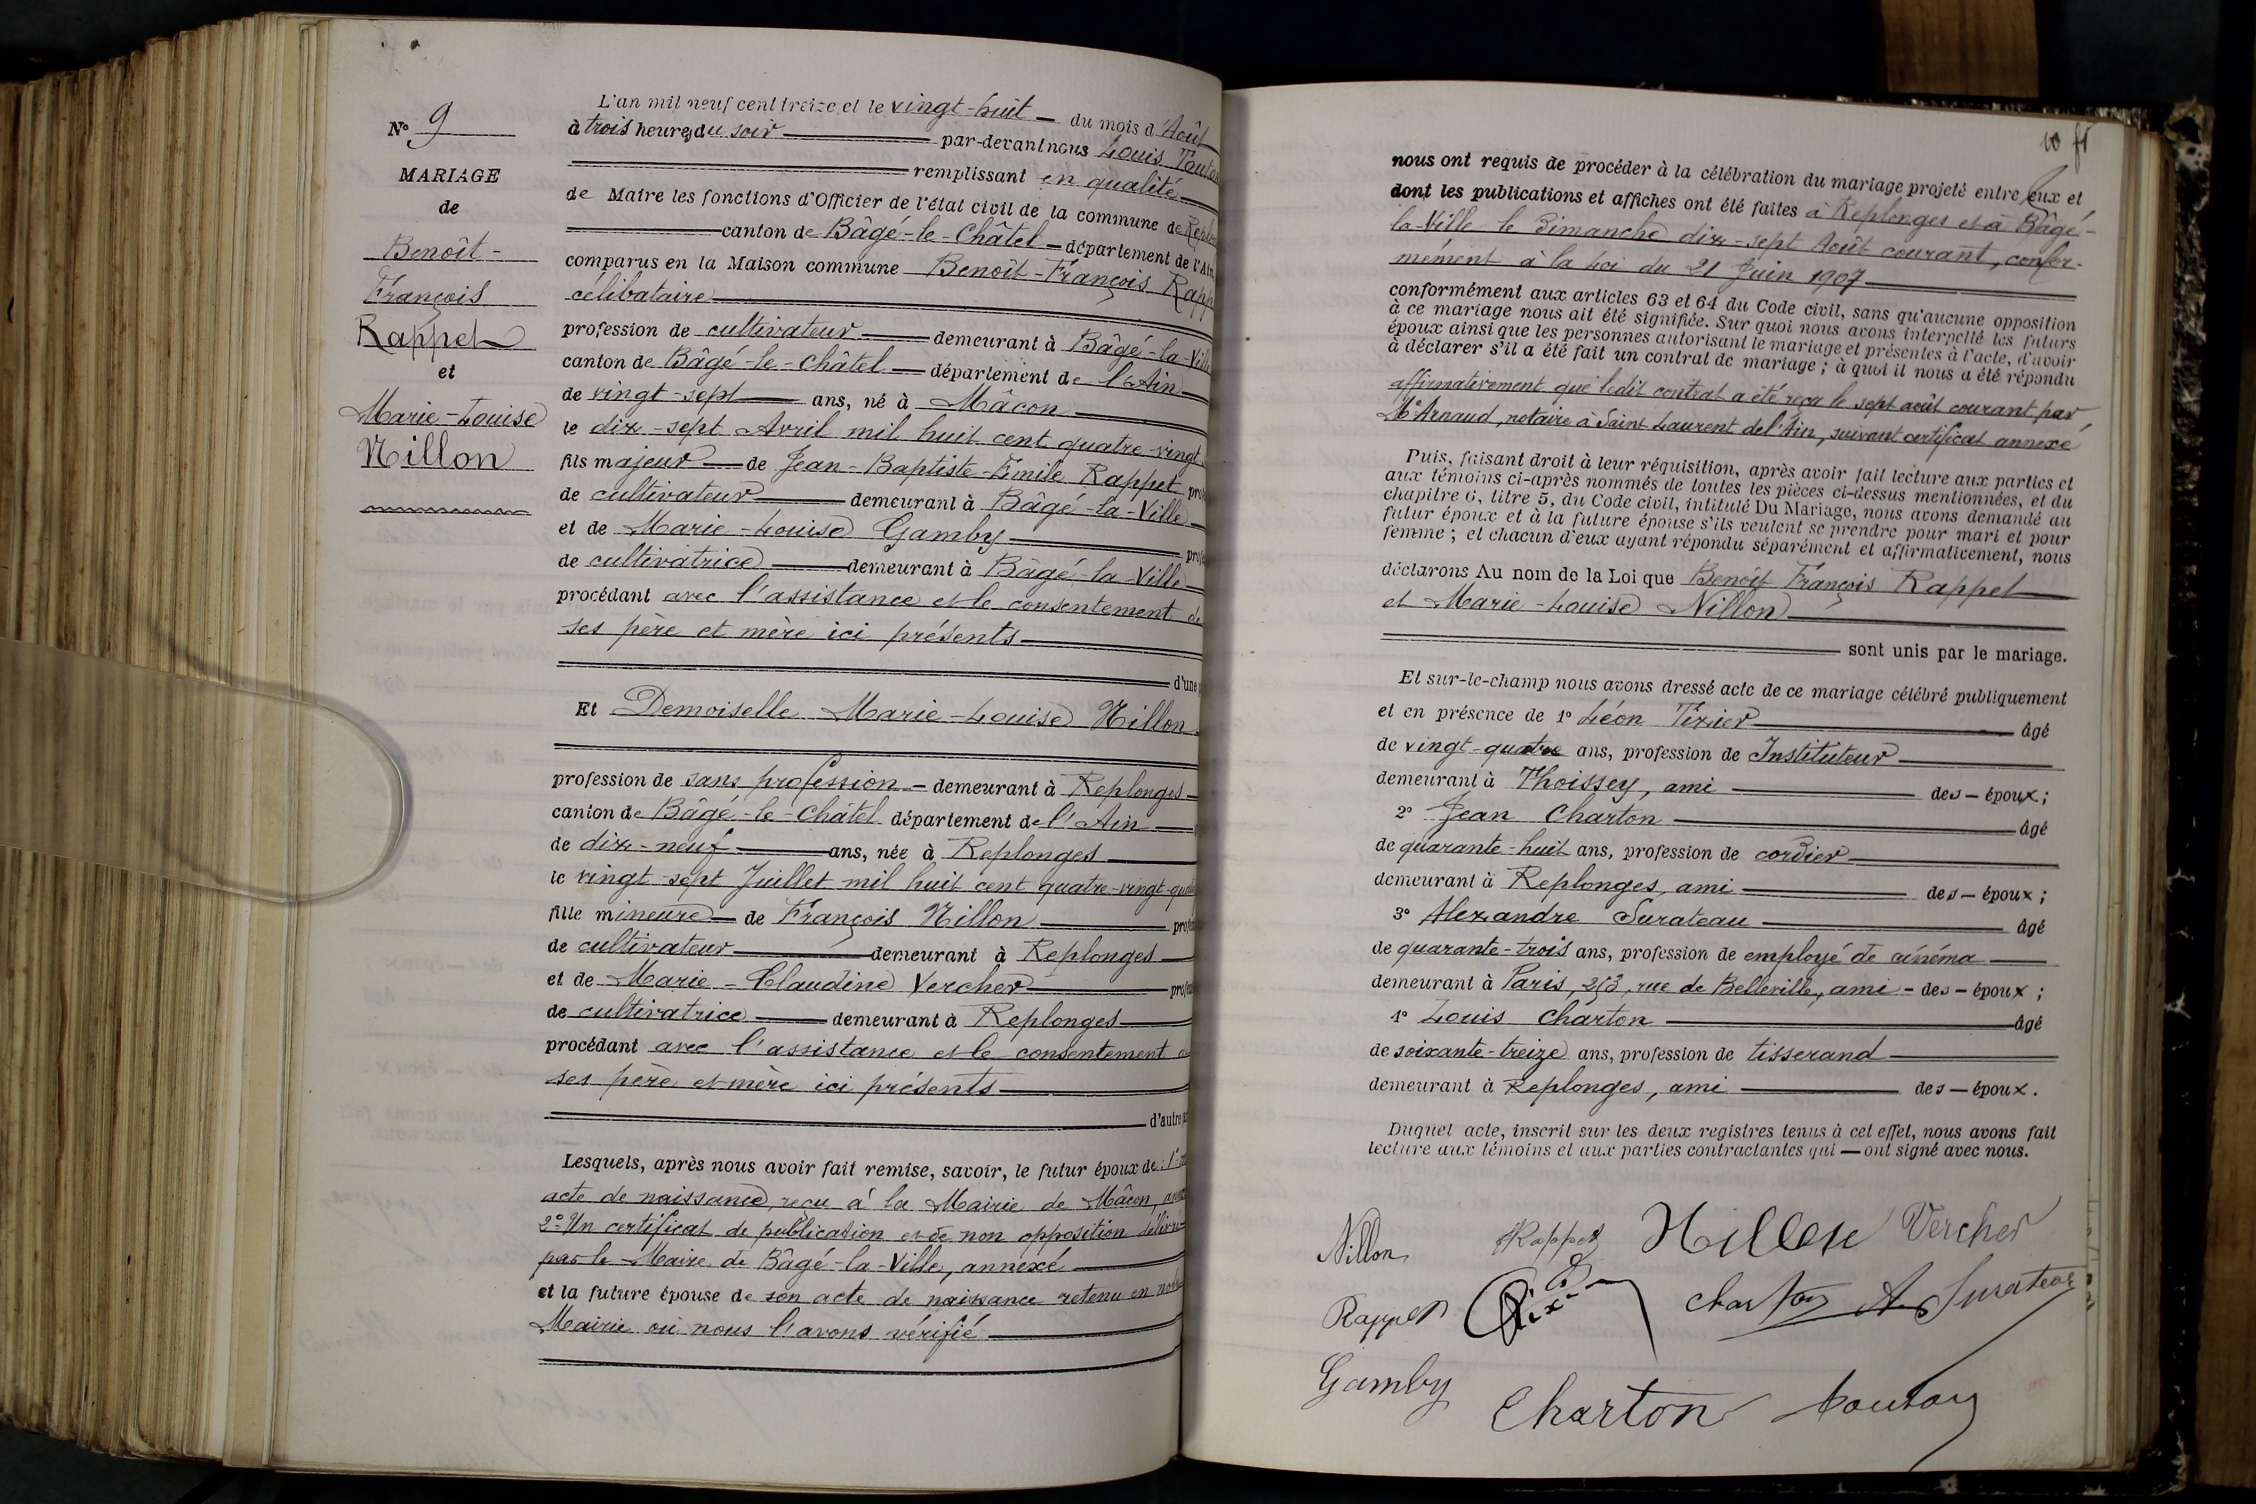 N° 9
MARIAGE
de
Benoît-
François
Rappet
et
Marie-Louise
Nillon
L'an mil neuf cent treize et le vingt-huit du mois d'Août
à trois heures du soir par-devant nous Louis
remplissant en qualité
de Maire les fonctions d'Officier de l'état civil de la commune de
canton de Bâgé-le-Châtel département de l'Ain
comparus en la Maison commune Benoît-François
célibataire
profession de cultivateur demeurant à Bâgé-la-Ville
canton de Bâgé-le-Châtel département de l'Ain
de vingt-sept ans, né à Mâcon
le dix-sept Avril mil huit cent quatre-vingt
fils majeur de Jean-Baptiste-Emile Rappet
de cultivateur demeurant à Bâgé-la-Ville
et de Marie-Louise Gamby
de cultivatrice demeurant à Bâgé-la-Ville
procédant avec l'assistance et le consentement de
ses père et mère ici présents
d'une
Et Demoiselle Marie-Louise Nillon
profession de sans profession demeurant à Replonges
canton de Bâgé-le-Châtel département de l'Ain
de dix-neuf ans, née à Replonges
le vingt-sept Juillet mil huit cent quatre-vingt
fille mineure de François Nillon
de cultivateur demeurant à Replonges
et de Marie-Claudine Vercher
de cultivatrice demeurant à Replonges
procédant avec l'assistance et le consentement
ses père et mère ici présents
d'autre
Lesquels, après nous avoir fait remise, savoir, le futur époux de : 1°
acte de naissance, reçu à la Mairie de Mâcon,
2° Un certificat de publication et de non opposition délivré
par le Maire de Bâgé-la-Ville, annexé
et la future épouse de son acte de naissance retenu en
Mairie où nous l'avons vérifié
10
nous ont requis de procéder à la célébration du mariage projeté entre eux et
dont les publications et affiches ont été faites à Replonges et à Bâgé-
la-Ville le Dimanche dix-sept Août courant, confor-
mément à la Loi du 21 Juin 1907
conformément aux articles 63 et 64 du Code civil, sans qu'aucune opposition
à ce mariage nous ait été signifiée. Sur quoi nous avons interpellé les futurs
époux ainsi que les personnes autorisant le mariage et présentes à l'acte, d'avoir
à déclarer s'il a été fait un contrat de mariage ; à quoi il nous a été répondu
affirmativement que ledit contrat a été reçu le sept août courant par
Me Arnaud, notaire à Saint Laurent de l'Ain, suivant certificat annexé
Puis, faisant droit à leur réquisition, après avoir fait lecture aux parties et
aux témoins ci-après nommés de toutes les pièces ci-dessus mentionnées, et du
chapitre 6, titre 5, du Code civil, intitulé Du Mariage, nous avons demandé au
futur époux et à la future épouse s'ils veulent se prendre pour mari et pour
femme ; et chacun d'eux ayant répondu séparément et affirmativement, nous
déclarons Au nom de la Loi que Benoît François Rappet
et Marie-Louise Nillon
sont unis par le mariage.
Et sur-le-champ nous avons dressé acte de ce mariage célébré publiquement
et en présence de 1° Léon Tixier âgé
de vingt-quatre ans, profession de Instituteur
demeurant à Thoissey, ami des époux ;
2° Jean Charton âgé
de quarante-huit ans, profession de cordier
demeurant à Replonges, ami des époux ;
3° Alexandre Surateau âgé
de quarante-trois ans, profession de employé de cinéma
demeurant à Paris, 253, rue de Belleville, ami des époux ;
4° Louis Charton âgé
de soixante-treize ans, profession de tisserand
demeurant à Replonges, ami des époux.
Duquel acte, inscrit sur les deux registres tenus à cet effet, nous avons fait
lecture aux témoins et aux parties contractantes qui ont signé avec nous.
Nillon Rappet Nillon Vercher
Rappet Tixier Charton A Surateau
Gamby Charton